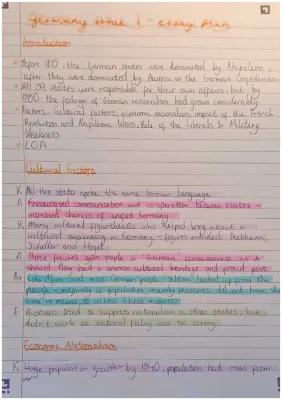 Germany issue 1 - essay plan
Introduction
Before 1815, the German states were dominated by Napoleon,
after they were dominated by Austria in the German Confederation
All 39 states were responsible for their own affairs, but by
1850 the feelings of German nationalism had grown considerably
Factors, cultural factors, economic nationalism, impact of the French
Revolution and Napoleonic Wars, Role of the Liberals & Military
Weakness
LOA
Cultural Factors
K All the states spoke the same German language
A Encouraged communication and co-operation between states -
increased chances of unified Germany
K Many cultural figureheads who helped bring about a
cultural awakening in Germany - figures included Beethoven,
Schiller and Hegel
A These figures gave people a 'German consciousness' as it
showed they had a common cultural heritage and proud past
Golo Mann said most German people "seldom looked up from the
plough" - majority of population, mainly peasants, did not have the
time or means to access these resources
E Austrians tried to suppress nationalism in other states, but
didn't work as national feeling was so strong
Economic Nationalism
K Huge population growth - by 1840, population had risen from